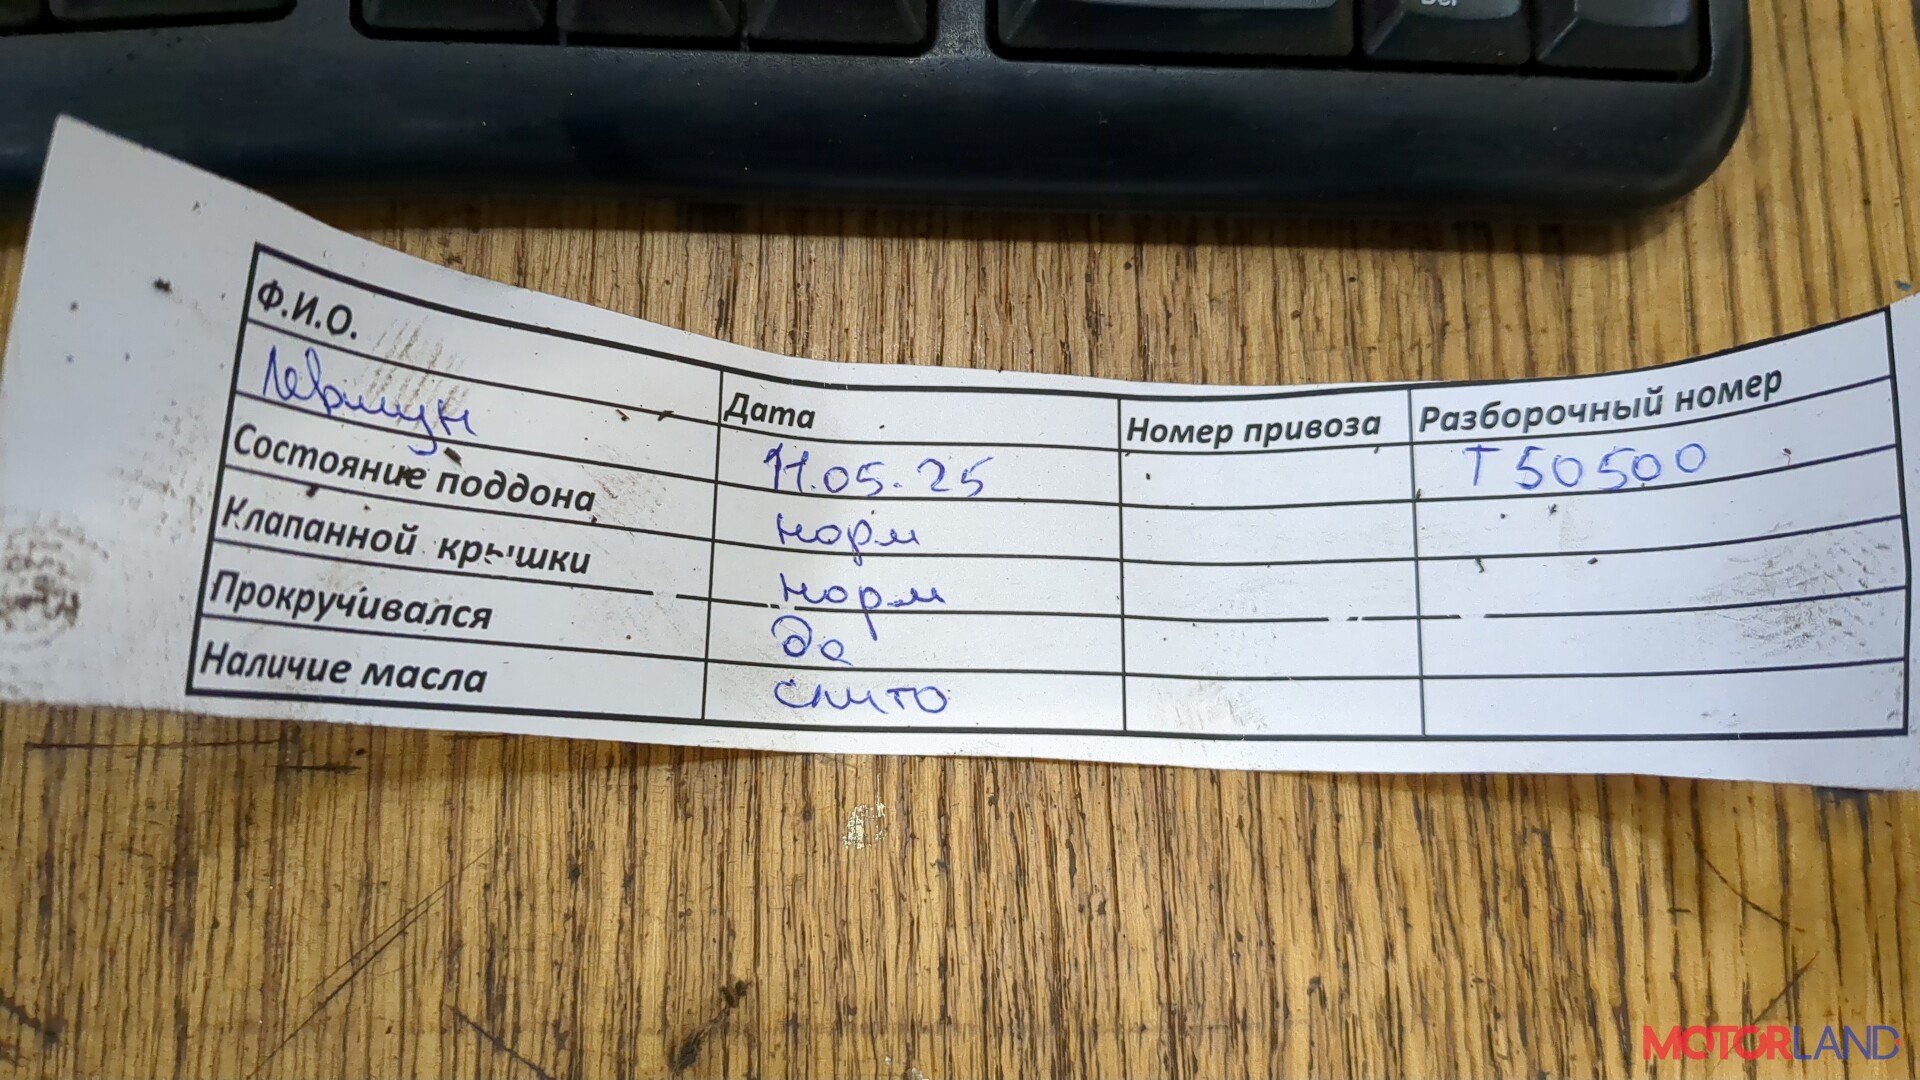 Del
Ф.И.О. Дата Номер привоза Разборочный номер
Левшун 11.05.25 Т50500
Состояние поддона норм
Клапанной крышки норм
Прокручивался да
Наличие масла слито
MOTORLAND